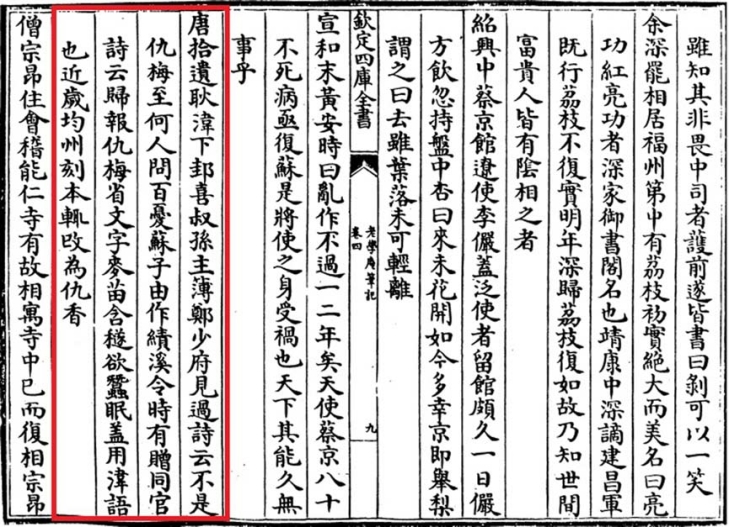 雖知其非畏中司者護前遂皆書曰剝可以一笑
余深罷相居福州第中有荔枝初實絶大而美名曰亮
功紅亮功者深家御書閣名也靖康中深謫建昌軍
既行荔枝不復實明年深歸荔枝復如故乃知世間
富貴人皆有陰相之者
紹興中蔡京館遼使李儼蓋泛使者留館頗久一日儼
方飲忽持盤中杏曰來未花開如今多幸京即舉梨
謂之曰去雖葉落未可輕離
欽定四庫全書
老學庵筆記
卷四
九
宣和末黃安時曰亂作不過一二年矣天使蔡京八十
不死病亟復蘇是將使之身受禍也天下其能久無
事乎
唐拾遺耿湋下邽喜叔孫主簿鄭少府見過詩云不是
仇梅至何人問百憂蘇子由作績溪令時有贈同官
詩云歸報仇梅省文字麥苗含穟欲蠶眠蓋用湋語
也近歲均州刻本輒改為仇香
僧宗昂住會稽能仁寺有故相寓寺中已而復相宗昂